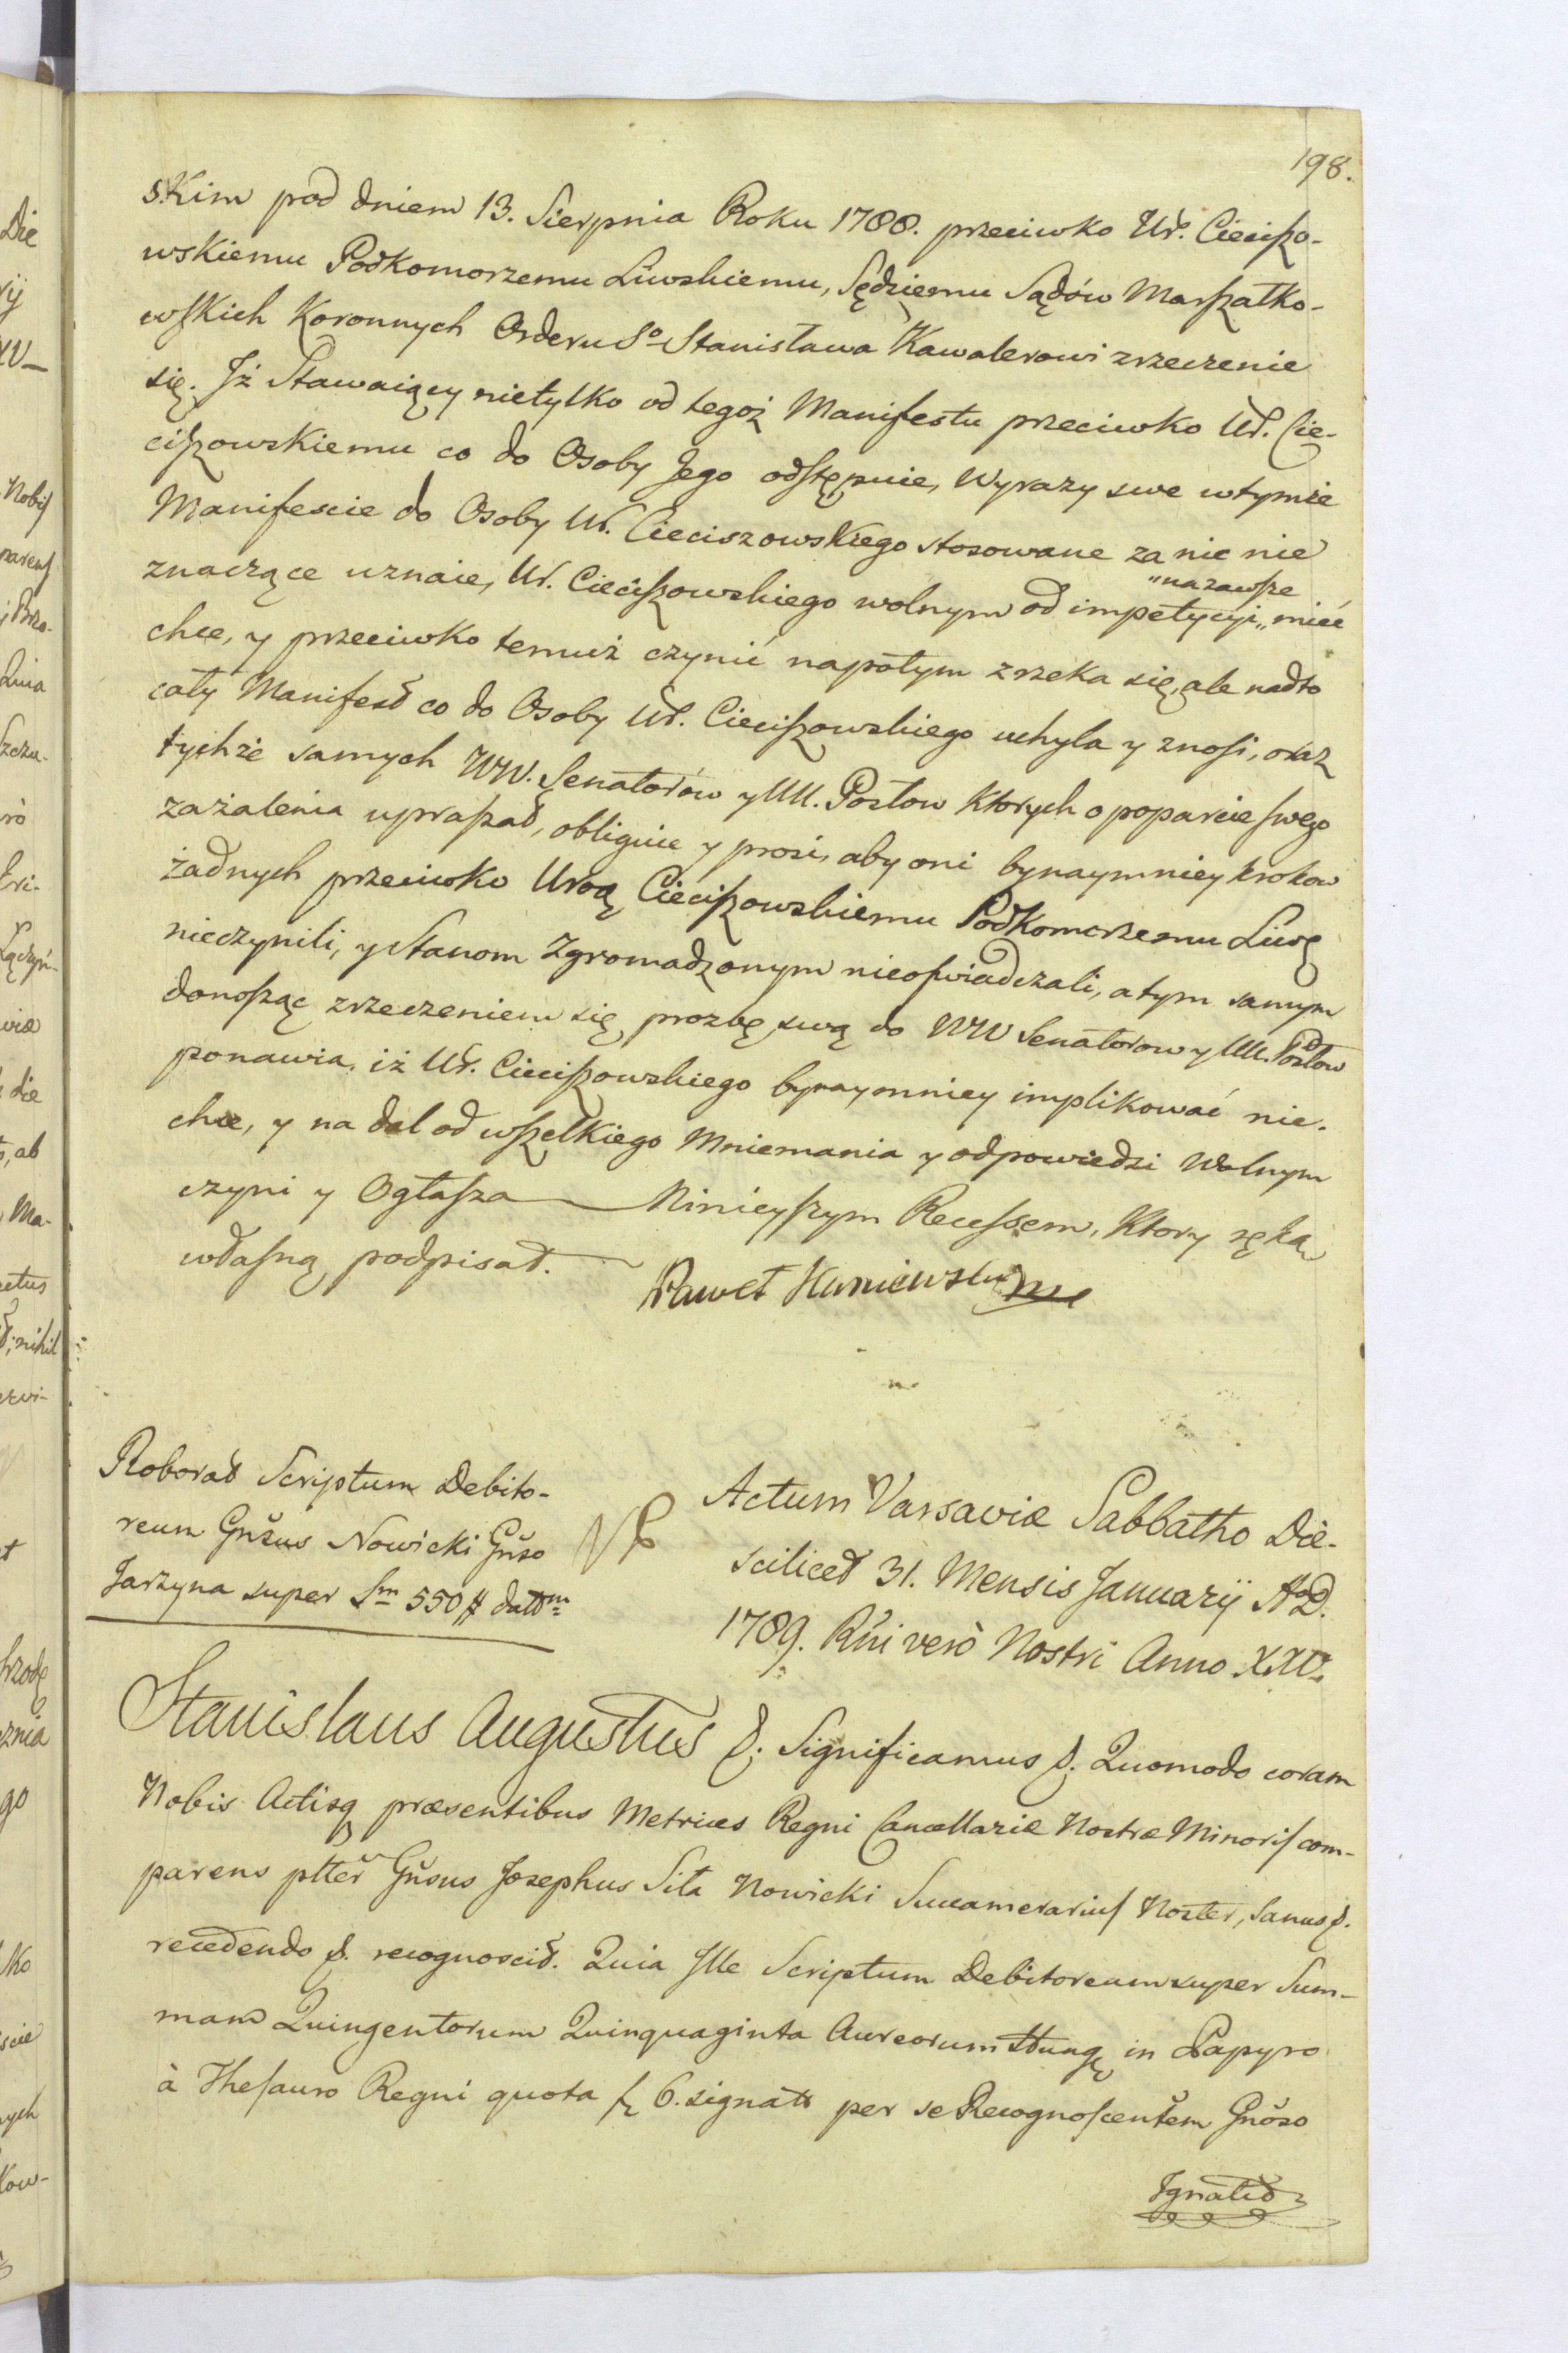 198.
skim pod dniem 13. Sierpnia Roku 1788. przeciwko Ur. Cieciszo-
wskiemu Podkomorzemu Liwskiemu, Sędziemu Sądów Marszałko-
wskich Koronnych Orderu So Stanisława Kawalerowi zrzeczenie
się. Iż Stawaiący nietylko od tegoż Manifestu przeciwko Ur. Cie-
ciszowskiemu co do Osoby Jego odstępuie, Wyrazy swe wtymże
Manifescie do Osoby Ur. Cieciszowskiego stosowane za nic nie
"na zawsze
znaczące uznaie, Ur. Cieciszowskiego wolnym od impetycyi "mieć
chce, y przeciwko temuż czynić napotym zrzeka się, ale nadto
cały Manifest co do Osoby Ur. Cieciszowskiego uchyla y znosi, oraz
tychże samych WW. Senatorów y UU. Posłow ktorych o poparcie swego
zażalenia upraszał, obliguie y prosi, aby oni bynaymniey krokow
żadnych przeciwko Urog Cieciszowskiemu Podkomorzemu Liwg
nieczynili, y Stanom Zgromadzonym nieoswiadczali, a tym samym
donosząc zrzeczeniem się prozbę swą do WW Senatorow y UU. Posłow
ponawia, iż Ur. Cieciszowskiego bynaymniey implikować nie-
chce, y na dal od wszelkiego Mniemania y odpowiedzi Wolnym
czyni y Ogłasza Ninieyszym Recessem, Ktory ręką
własną podpisał.
Paweł Kuniewski mp
Roborat Scriptum Debito-
reum Gnsus Nowicki Gnso
Jarzyna super Sm 550 # datum
NB
Actum Varsaviæ Sabbatho Die-
scilicet 31. Mensis Januarij A.D.
1789. Rni verò Nostri Anno XXV.
Stanislaus Augustus &. Significamus &. Quomodo coram
Nobis Actisq præsentibus Metrices Regni Cancellariæ Nostræ Minoris com-
parens plter Gnsus Josephus Sita Nowicki Succamerarius Noster, Sanus &.
recedendo &. recognoscit. Quia Ille Scriptum Debitoreum super Sum-
mam Quingentorum Quinquaginta Aureorum Hung in Papyro
à Thesauro Regni quota fl 6. signat per se Recognoscentem Gnoso
Ignatio